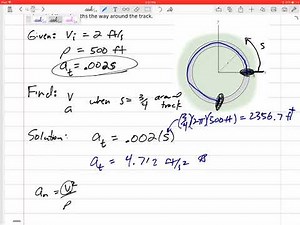 ths the way around the track.
Given: Vi = 2 ft/s
ρ = 500 ft
at = .002s
S
Find: V
a when s = 3/4 around track
Solution: at = .002(s)
(3/4)(2π)(500 ft) = 2356.7 ft
at = 4.712 ft/s2
an = V²/ρ